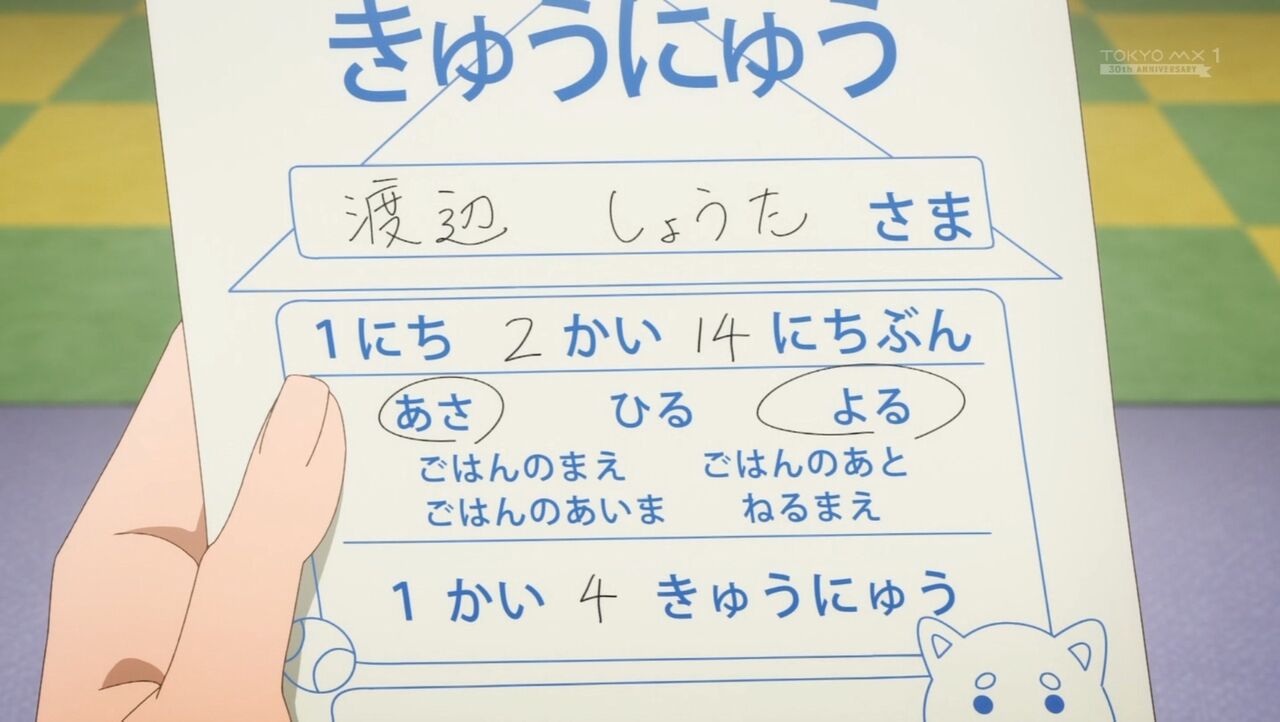 きゅうにゅう
TOKYO MX 1
30th ANNIVERSARY
渡辺 しょうた さま
1にち 2 かい 14 にちぶん
あさ ひる よる
ごはんのまえ ごはんのあと
ごはんのあいま ねるまえ
1 かい 4 きゅうにゅう